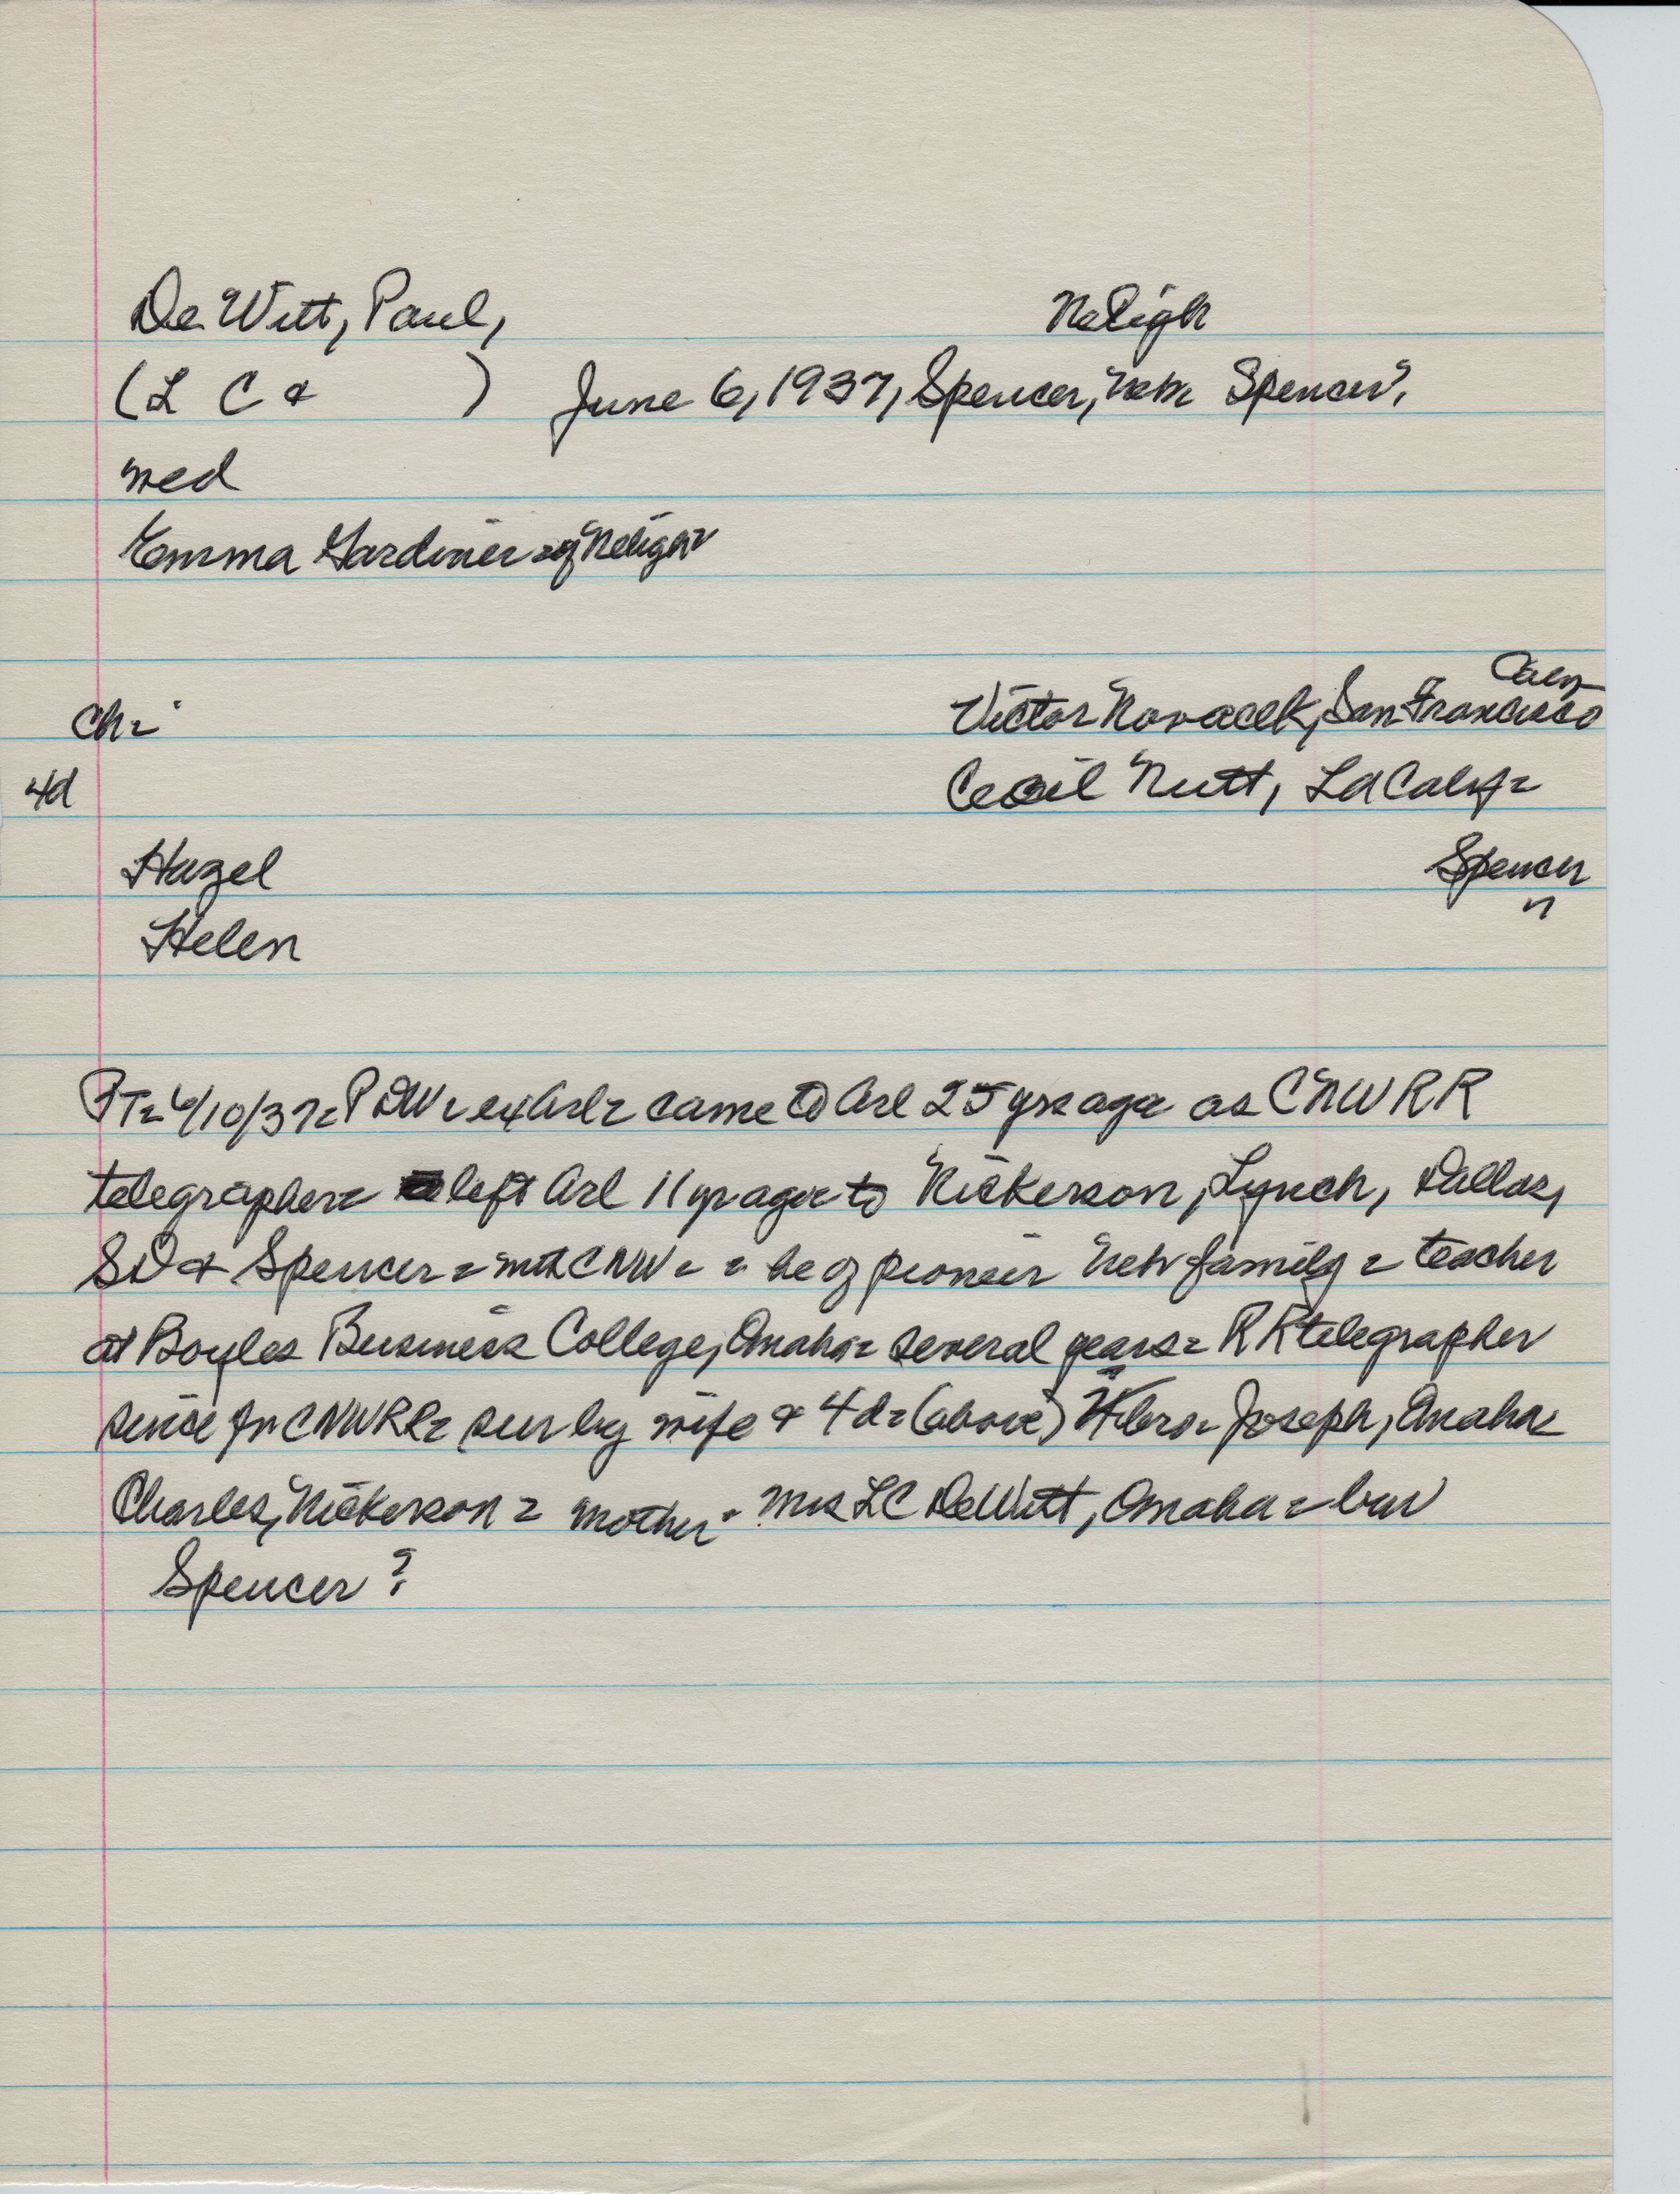 De Witt, Paul, Neligh
(L C & ) June 6, 1937, Spencer, Neb= Spencer?
med
Emma Gardiner = of Neligh=
Calif
Ch= Victor Novacek, San Francisco
4d Cecil Nutt, LA Calif=
Hazel Spencer
Helen "
PT= 6/10/37= PDW = ex Arl= came to Arl 25 yrs ago= as CNWRR
telegrapher= left Arl 11 yr ago= to Nickerson, Lynch, Dallas,
SD & Spencer = with CNW = = he of pioneer Neb family = teacher
at Boyles Business College, Omaha= several years= RR telegrapher
since for CNWRR= sur by wife & 4d= (above) bro= Joseph, Omaha=
Charles, Nickerson = mother= Mrs LC DeWitt, Omaha = bur
Spencer?